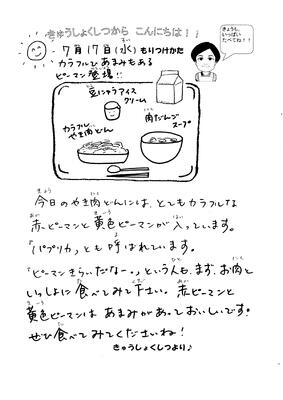 きゅうしょくしつから こんにちは！！
きょうも、
いっぱい
たべてね！！
7月17日(水) もりつけかた
カラフルで あまみもある
ピーマン登場!!
豆にゅうアイス
クリーム
肉だんご
スープ
カラフル
やき肉どん
今日のやき肉どんには、とてもカラフルな
赤ピーマンと黄色ピーマンが入っています。
「パプリカ」とも呼ばれています。
「ピーマンきらいだなー。」という人も、まず、お肉と
いっしょに食べてみて下さい。赤ピーマンと
黄色ピーマンは あまみがあっておいしいです。
ぜひ食べてみてくださいね！
きゅうしょくしつより♪